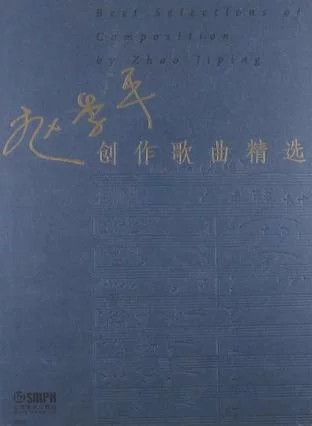 Best Selections of
Composition
by Zhao Jiping
赵季平
创作歌曲精选
SMPH